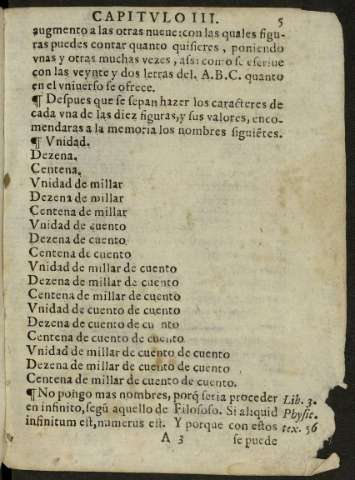 CAPITVLO III. 5
augmento a las otras nueue: con las quales figu-
ras puedes contar quanto quisieres, poniendo
vnas y otras muchas vezes, assi como se escriue
con las veynte y dos letras del. A.B.C. quanto
en el vniuerso se ofrece.
¶ Despues que se sepan hazer los caracteres de
cada vna de las diez figuras, y sus valores, enco-
mendaras a la memoria los nombres siguiẽtes.
¶ Vnidad.
Dezena.
Centena.
Vnidad de millar
Dezena de millar
Centena de millar
Vnidad de cuento
Dezena de cuento.
Centena de cuento
Vnidad de millar de cuento
Dezena de millar de cuento
Centena de millar de cuento
Vnidad de cuento de cuento
Dezena de cuento de cuento
Centena de cuento de cuento
Vnidad de millar de cuento de cuento
Dezena de millar de cuento de cuento
Centena de millar de cuento de cuento.
¶ No pongo mas nombres, porq̃ seria proceder Lib. 3.
en infinito, segũ aquello de Filosofo. Si aliquid Physic.
infinitum est, numerus est. Y porque con estos tex. 56
A 3 se puede